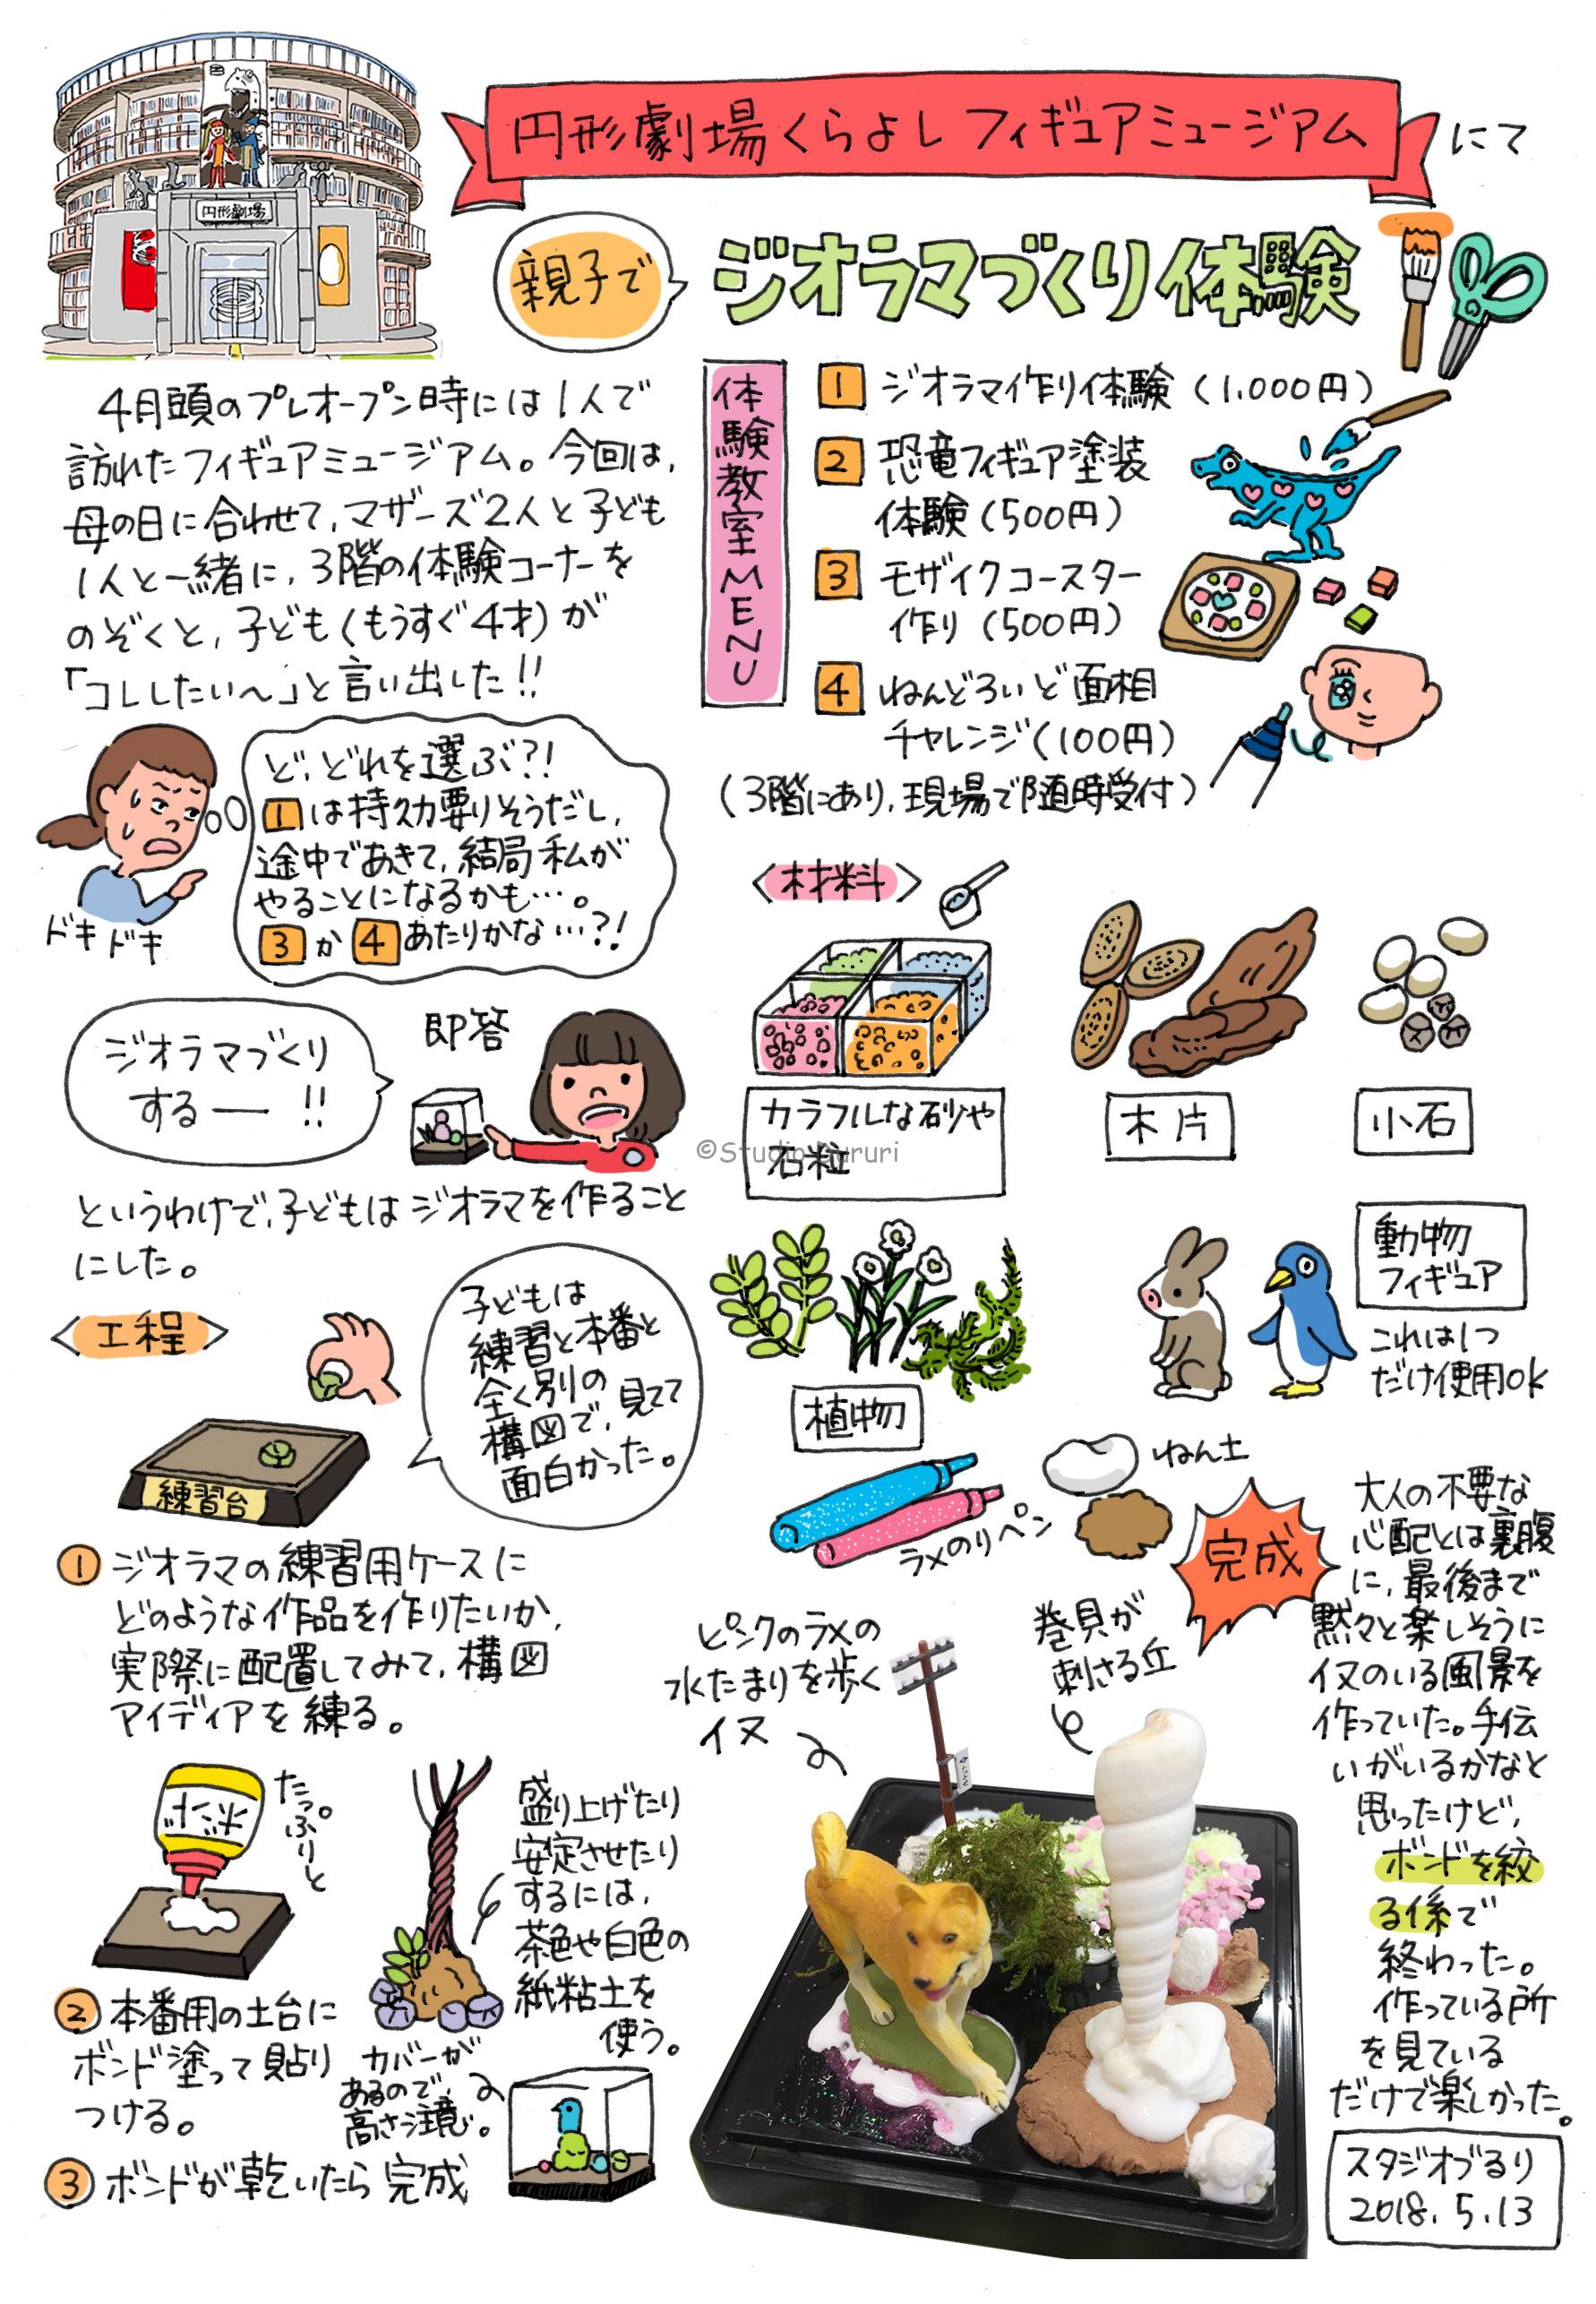 円形劇場くらよしフィギュアミュージアム にて
円形劇場
親子で
ジオラマづくり体験
4月頭のプレオープン時には1人で
訪れたフィギュアミュージアム。今回は、
母の日に合わせて、マザーズ2人と子ども
1人と一緒に、3階の体験コーナーを
のぞくと、子ども(もうすぐ4才)が
「コレしたい〜」と言い出した!!
体験教室MENU
1 ジオラマ作り体験(1,000円)
2 恐竜フィギュア塗装
体験(500円)
3 モザイクコースター
作り(500円)
4 ねんどろいど面相
チャレンジ(100円)
(3階にあり、現場で随時受付)
ど、どれを選ぶ?!
1は持久力要りそうだし、
途中であきて、結局私が
やることになるかも…。
3か4あたりかな…?!
ドキドキ
ジオラマづくり
するー!!
即答
というわけで、子どもはジオラマを作ること
にした。
〈材料〉
カラフルな砂や
石粒
木片
小石
©Studio Bururi
植物
動物
フィギュア
これは1つ
だけ使用OK
ラメのりペン
ねん土
〈工程〉
練習台
子どもは
練習と本番と
全く別の
構図で、見てて
面白かった。
① ジオラマの練習用ケースに
どのような作品を作りたいか、
実際に配置してみて、構図
アイディアを練る。
ボンド
たっぷりと
② 本番用の土台に
ボンド塗って貼り
つける。
盛り上げたり
安定させたり
するには、
茶色や白色の
紙粘土を
使う。
カバーが
あるので、
高さ注意。
③ ボンドが乾いたら完成
完成
ピンクのラメの
水たまりを歩く
イヌ
巻貝が
刺さる丘
大人の不要な
心配とは裏腹
に、最後まで
黙々と楽しそうに
イヌのいる風景を
作っていた。手伝
いがいるかなと
思ったけど、
ボンドを絞
る係で
終わった。
作っている所
を見ている
だけで楽しかった。
スタジオづるり
2018.5.13